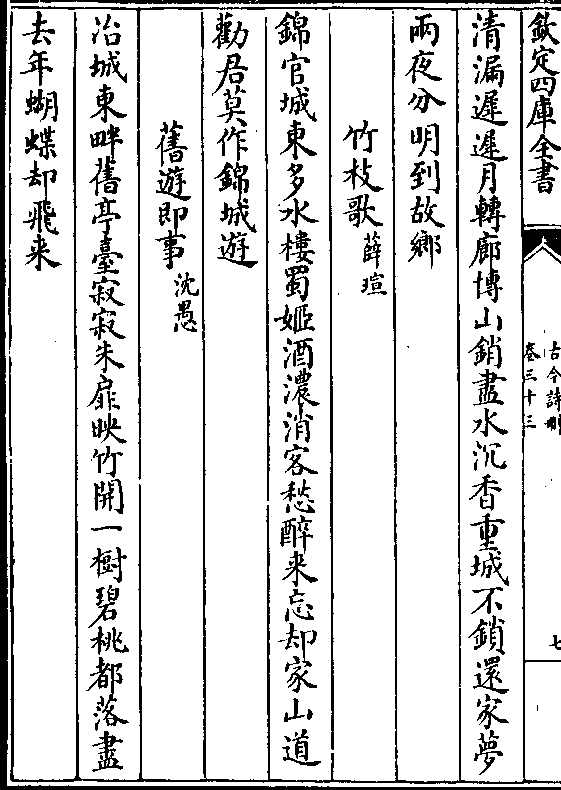 欽定四庫全書
古今詩刪
卷三十三
七
清漏遲遲月轉廊博山銷盡水沉香重城不鎖還家夢
兩夜分明到故鄉
竹枝歌 薛瑄
錦官城東多水樓蜀姬酒濃消客愁醉来忘却家山道
勸君莫作錦城遊
舊遊即事 沈愚
冶城東畔舊亭臺寂寂朱扉映竹開一樹碧桃都落盡
去年蝴蝶却飛来